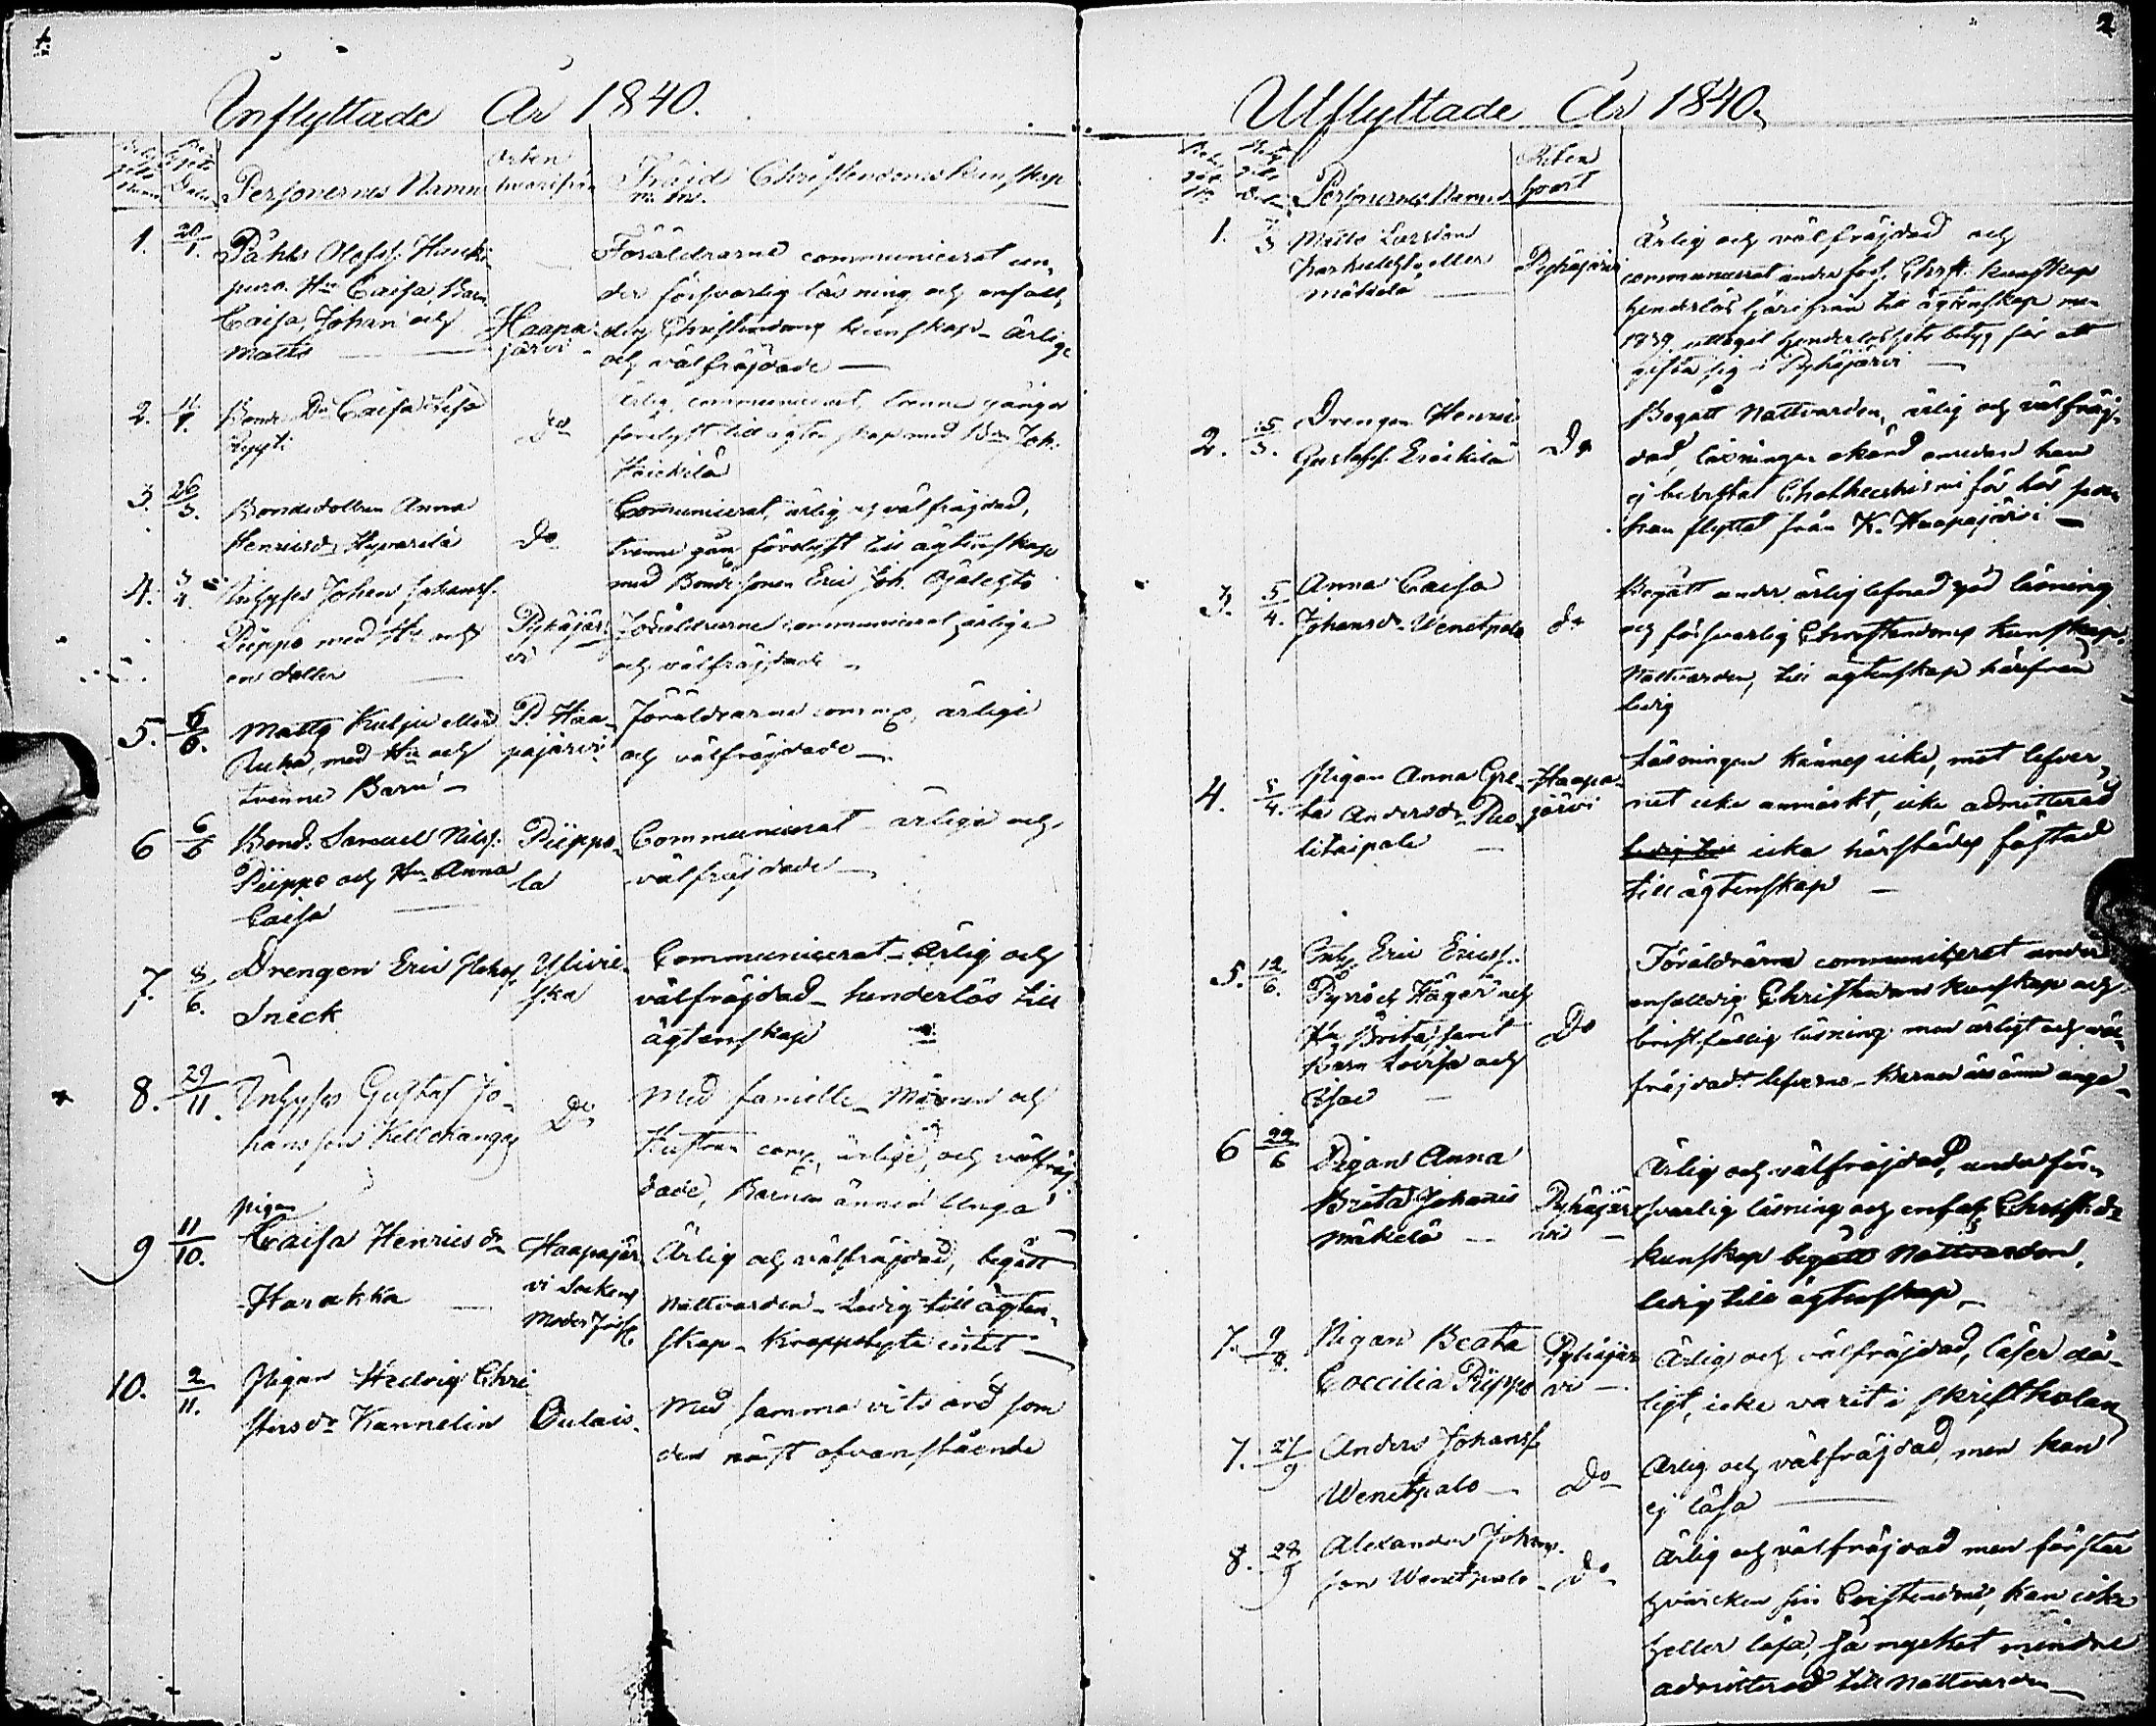 1
Inflyttade År 1840.
Personernes Namn
Orten hvarifrån
Fräjd Christendoms Kunskap
m. m.
1. 20/1.
Påhls Olofss. Hauki
puro Hu Caisa, Barn
Caisa, Johan och
Matts
Haapa
järvi
Föräldrarne communicerat un
der försvarlig läsning och enfal
dig Christendoms kunskap ärlige
och välfräjdade
2.
Bonde Dr Caisa Lisa
do
ärlig, communicerat, trenne gånger
förelyst till ägtenskap med Joh.
3. 26/3.
Bondedottern Anna
Henricsdr Hyvärilä
do
Communicerat, ärlig och välfräjdad,
trenne gång förelyst till ägtenskap
med Bondesonen Eric Joh. Ojalehto
4. 3/4
Inhyses Johan Johanss.
Piippo med Hu och
en dotter
Pyhäjär
vi
Föräldrarne communicerat, ärlige
och välfräjdade
5. 6/6.
Matts Kulju eller
Ruha, med Hu och
trenne Barn
P. Haa
pajärvi
Föräldrarne comm, ärlige
och välfräjdade
6 6/6
Bond. Samuel Nilss.
Piippo och Hu Anna
Caisa
Piippo
la
Communicerat ärlige och
välfräjdade
7. 8/6.
Drengen Eric
Sneck
Ylivie
ska
Communicerat ärlig och
välfräjdad hinderlös till
ägtenskap
8. 29/11.
Inhyses Gustaf Jo
hansson Kellokangas
Do
Med famille Mannen och
Hustrun com, ärlige, och välfräj
dade, Barnen ännu Unga
9 11/10.
pigan
Caisa Henricsdr
Harakka
Haapajär
vi Sockens
Moderförs
Ärlig och välfräjdad, begått
Nattvarden Ledig till ägten
skap. Kroppslyte intet
10. 2/11.
Pigan Hedvig Chri
stersdr Kannelin
Oulais
Med samma vitsord som
den näst ofvanstående
2
Utflyttade År 1840.
Personernes Namn
Orten
hvart
1.
Matts Larsson
eller
Mäkelä
Pyhäjärvi
Ärlig och välfräjdad och
communicerat under förs. Christ. kunskap
hinderlös härifrån till ägtenskap men
1839 uttagit hinderlöshets betyg för att
gifta sig i Pyhäjärvi
2. 15/3.
Drengen Henric
Gustafss. Erickilä
Do
Begått Nattvarden, ärlig och välfräj
dad, läsningen okänd emedan han
ej bevistat för hos
han flyttat från K. Haapajärvi
3. 5/4.
Anna Caisa
Johansdr Wenetpalo
do
Begått under ärlig lefnad god läsning
och försvarlig Christendoms kunskap
Nattvarden, till ägtenskap härifrån
ledig
4. 5/4.
Pigan Anna Gre
ta Andersdr Puo
litaipale
Haapa
järvi
Läsningen kännes icke, mot lefver
net icke anmärkt, icke admitterad
ledig till icke härstädes fästad
till ägtenskap
5. 12/6.
Inh Eric Ericss.
och
Hu Brita, samt
Barn Lovisa och
Isac
Do
Föräldrarne communicerat under
enfaldig Christendoms kunskap och
bristfällig läsning men ärligt och väl
fräjdadt leferne Barnen äro ännu unga
6 22/6
Pigan Anna
Brita Johans
Mäkelä
Pyhäjär
vi
Ärlig och välfräjdad, under för
svarlig läsning och enfal. Christds
kunskap begått Nattvarden.
ledig till ägtenskap
7. 9/8.
Pigan Beata
Coecilia Piippo
Pyhäjär
vi
Ärlig och välfräjdad, läser då
ligt, icke varit i skriftskolan
7. 27/9
Anders Johanss.
Wenetpalo
Do
Ärlig och välfräjdad, men kan
ej läsa
8. 28/9
Alexander Johans
son Wenetpalo
Do
Ärlig och välfräjdad men förstår
hvarcken sin Cristendom, kan icke
heller läsa, så mycket mindre
admitterad till Nattvarden